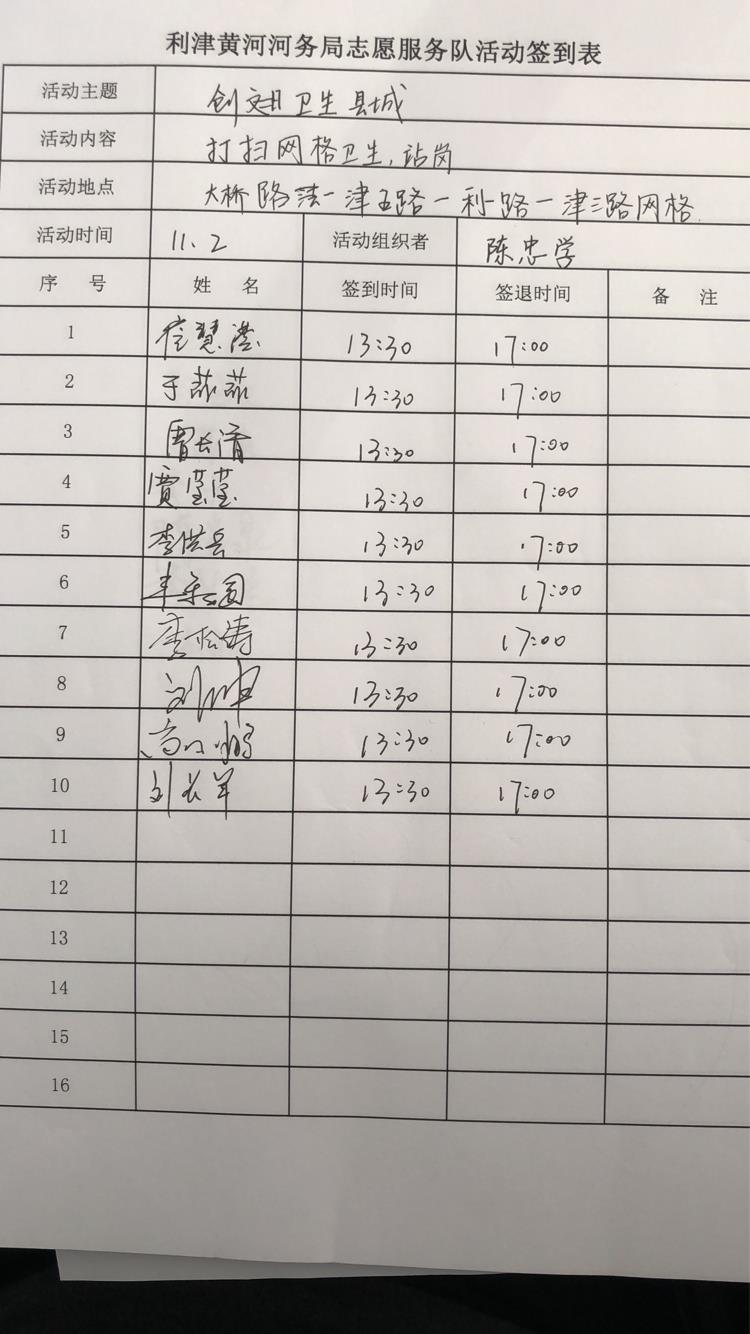 利津黄河河务局志愿服务队活动签到表
活动主题 创文明卫生县城
活动内容 打扫网格卫生,站岗
活动地点 大桥路 一津五路一利一路一津三路网格
活动时间 11.2 活动组织者 陈忠学
序 号 姓 名 签到时间 签退时间 备 注
1 慧滢 13:30 17:00
2 于菲菲 13:30 17:00
3 长清 13:30 17:00
4 贾莹莹 13:30 17:00
5 李洪岳 13:30 17:00
6 13:30 17:00
7 李松涛 13:30 17:00
8 刘坤 13:30 17:00
9 高 鹏 13:30 17:00
10 刘长军 13:30 17:00
11
12
13
14
15
16